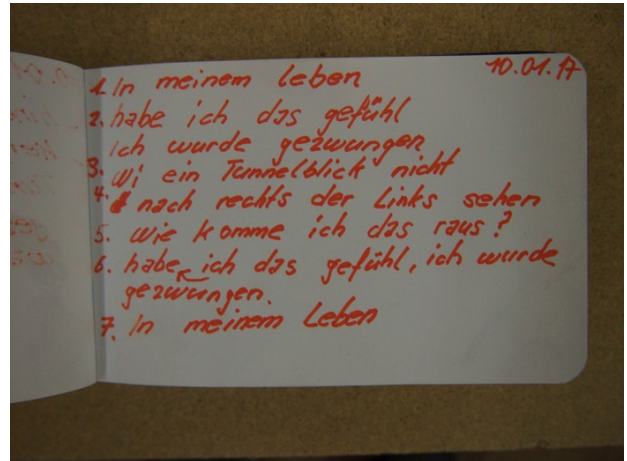 10.01.17
1. In meinem leben
2. habe ich das gefühl
ich wurde gezwungen
3. wi ein Tunnelblick nicht
4. nach rechts der Links sehen
5. wie komme ich das raus?
6. habe ich das gefühl, ich wurde
gezwungen.
7. In meinem Leben